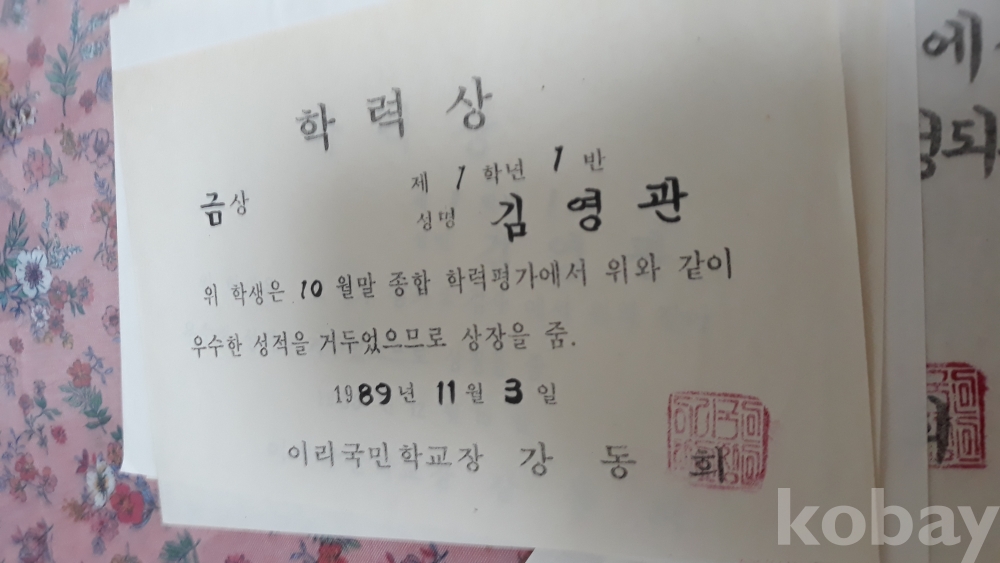 학력상
금상
제 1 학년 1 반
성명 김영관
위 학생은 10월말 종합 학력평가에서 위와 같이
우수한 성적을 거두었으므로 상장을 줌.
1989년 11월 3일
이리국민학교장 강동회
에
되
kobay